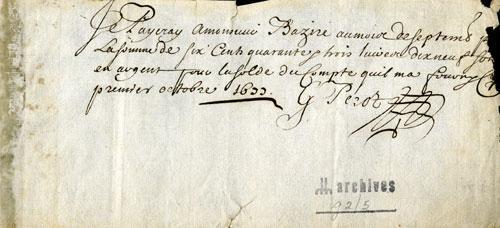 Je Payeray Amonsieur Bazire aumois de septemb
La somme de six Cents quarante et trois livres dix neuf sols
en argent pour la solde du Compte quil ma fourny
premier octobre 16
G Perot
archives
92/5